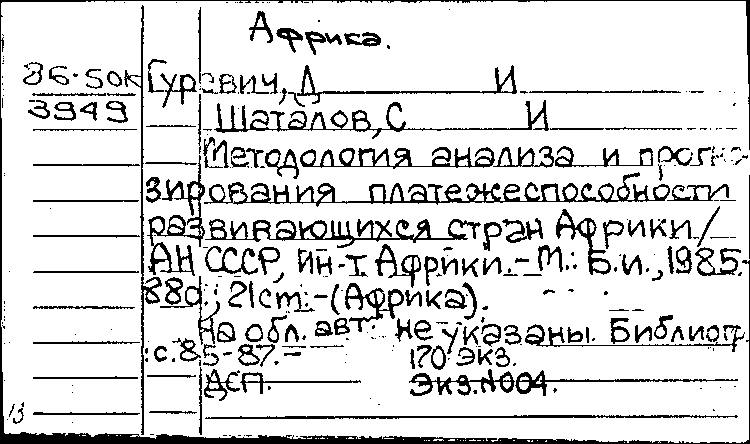 Африка.
86-5ок Гуревич, Д И
3949
Шаталов, С И
Методология анализа и прогно-
зирования платежеспособности
развивающихся стран Африки /
АН СССР, Ин-т Африки. - М.: Б.и., 1985.-
88с.; 21см.-(Африка).
На обл. авт. не указаны. Библиогр.
: с. 85-87. - 170 экз.
ДСП. Экз.N004.
13